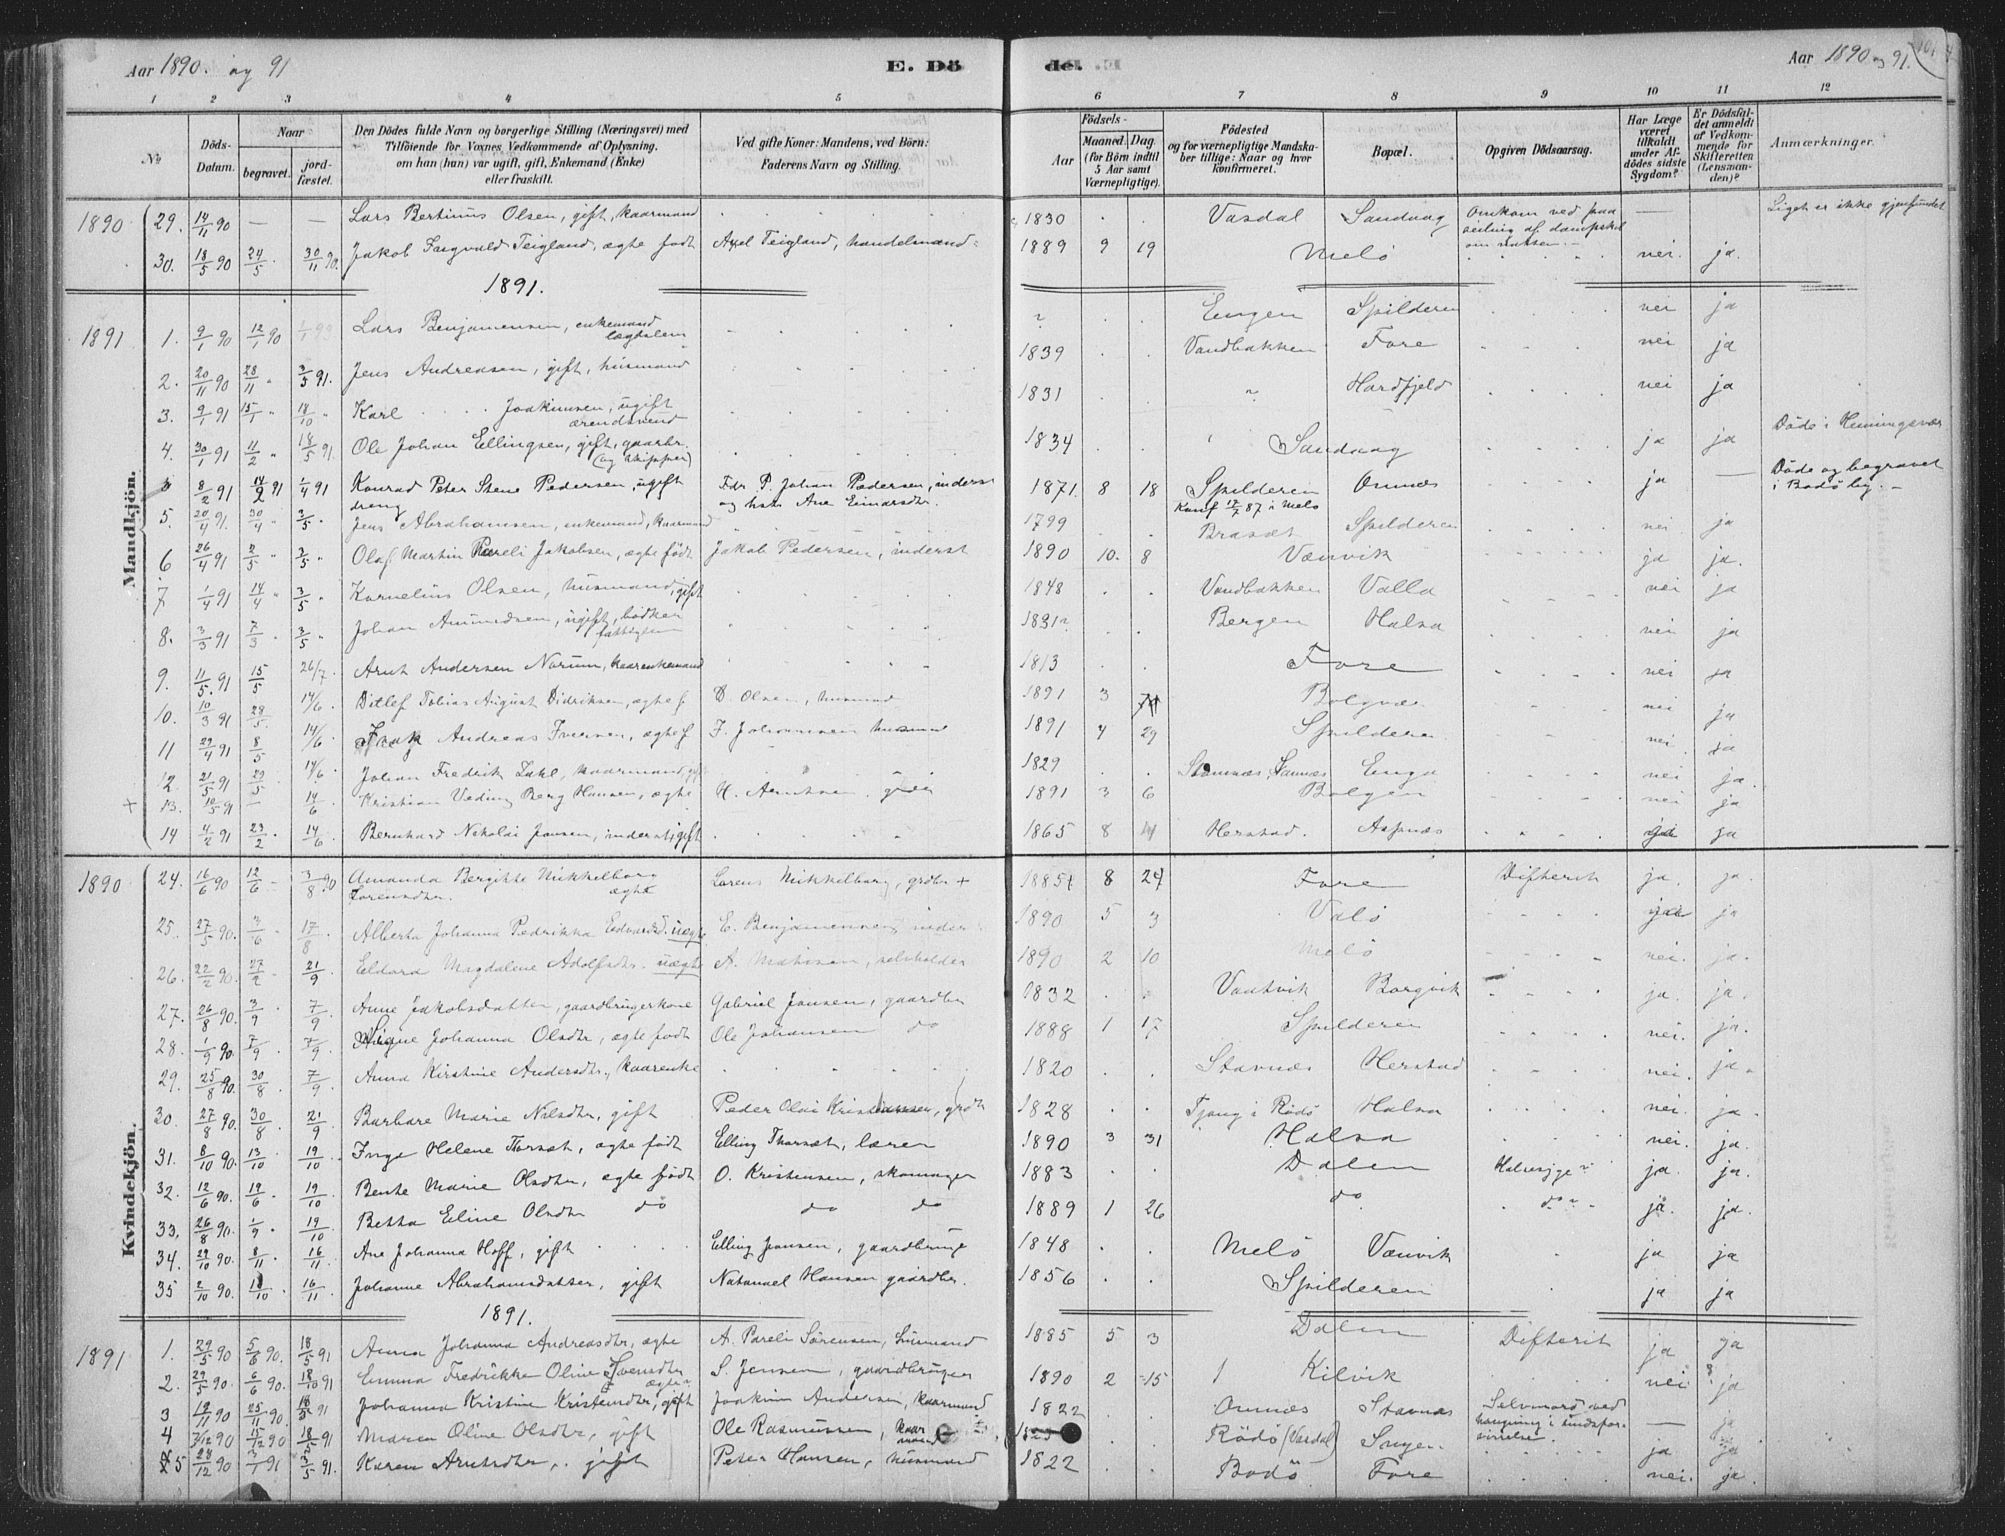 Aar 1890. og 91
E. Dö
de.
Aar 1890 og 91.
1 2 3 4 5 6 7 8 9 10 11 12
No
Döds-Datum.
Naar
begravet.
jord-fæstet.
Den Dödes fulde Navn og borgerlige Stilling (Næringsvei) med
Tilföiende for Voxnes Vedkommende af Oplysning.
om han (hun) var ugift, gift, Enkemand (Enke)
eller fraskilt.
Ved gifte Koner: Mandens, ved Börn:
Faderens Navn og Stilling.
Födsels-
Aar
Maaned. Dag
(for Börn indtil
5 Aar samt
Værnepligtige).
Födested
og for værnepligtige Mandska-
ber tillige: Naar og hvor
konfirmeret.
Bopæl.
Opgiven Dödsaarsag.
Har Læge
været
tilkaldt
under Af-
dödes sidste
Sygdom?
Er Dödsfal-
det anmeldt
af Vedkom-
mende for
Skifteretten
(Lensman-
den)?
Anmærkninger.
Mandkjön.
1890 29. 14/11 90 — — Lars Bertinus Olsen, gift, kaarmand 1830 Vasdal Sandaag Omkom ved paa seiling af dampskib om natten. — Liget er ikke gjenfundet
30. 18/5 90 24/5 30/11 90. Jakob Sigvald Teigland, ægte født Axel Teigland, handelsmand 1889 9 19 Melö nei. ja.
1891.
1891 1. 9/1 90 12/1 90 Lars Benjaminsen, enkemand lægdslem Engen Spilderen nei ja
2. 20/11 90 28/11 " 3/5 91. Jens Andreasen, gift, husmand 1839 Vandbakken Fore nei ja
3. 9/1 91 15/1 " 18/10 " Karl Joakimsen, ugift ærendsvend 1831 " Hardfjeld nei ja
4. 30/1 91 11/2 " 18/5 91. Ole Johan Ellingsen, gift, gaarbr. (og skipper) 1834 Sandaag ja ja Döde i Henningsvær
8/2 91 14/2 91 1/4 91 Konrad Peter Stene Pedersen, ugift dreng Fdr P. Johan Pedersen, inderst og hstr Ane Einarsdtr. 1871. 8 18 Spilderen Konf 17/7 87 i Melö Omnes ja — Döde og begravet i Bodö by. —
5. 20/4 91. 30/4 " 3/5 " Jens Abrahamsen, enkemand, kaarmand 1799 Brasæt Spilderen nei ja
6 26/4 91 2/5 " 3/5 " Olaf Martin Pareli Jakobsen, ægte født Jakob Pedersen, inderst 1890 10. 8 Vænvik ja ja.
7 1/4 91 14/4 " 3/5 " Kornelius Olsen, husmand, gift 1848 Vandbakken Valla nei ja
8. 3/3 91 7/3 " 3/5 " Johan Amundsen, ugift, bödker fattiglem 1831 Bergen Halsa nei ja
9. 11/5. 91 15/5 26/7 Arnt Andersen Norum, kaarenkemand 1813 Fore nei ja
10. 10/3 91 28/5. 14/6 Ditlef Tobias August Didriksen, ægte f. D. Olsen, husmand 1891 3 Bolgvær nei ja
11 29/4 91 8/5 14/6 Isak Andreas Iversen, ægte f I. Johannesen husmand 1891 4 29 Spilderen nei ja
12. 21/5 91 29/5 14/6 Johan Fredrik Zahl, kaarmand, gift 1829 Stavnæs, Enga nei ja.
+ 13. 10/5 91 — 14/6 Kristian Veding Berg Hansen, ægte H. Arntsen, 1891 3 6 Bolgen nei ja
14 4/2 91 23/2 14/6 Bernhard Nikolai Jansen, inderst, gift 1865 8 Herstad. Aspnæs ja
Kvindekjön.
1890 24. 16/6 90 12/6 — 3/8 90 Amanda Bergitte Mikkelborg Lorensdtr. ægte Lorens Mikkelborg, grdbr + 1885 8 24 Fore Difterit ja. ja.
25. 27/5 90. 3/6 17/8 Alberta Johanna Pedrikka Edvardsd. uægte E. Benjaminsen, inderst 1890 5 3 Valö ja
26. 22/2 90. 27/2 21/9 Eldora Magdalene Adolfsdtr. uægte A. Mathisen, selvholder 1890 2 10 Melö nei. ja.
27. 26/8 90. 3/9 7/9 Anne Jakobsdatter, gaardbrugerkone Gabriel Jansen, gaardbr 1832 Vaatvik Borgvik ja. ja.
28. 1/9 90. 7/9 7/9. Signe Johanna Olsdtr, ægte født Ole Johansen do 1888 1 17 Spilderen nei. ja.
29. 25/8 90. 30/8. 7/9 Anna Kirstine Andersdtr., kaarenke 1820 Stavnæs Herstad nei. ja.
30. 27/8 90. 30/8. 21/9 Barbare Marie Nilsdtr, gift Peder Olai Kristiansen, grdb 1828 Tjong i Rödö Halsa nei. ja.
31. 8/10 90. 13/10 19/10 Inga Helene Thorsæt, ægte født Elling Thorsæt, lærer 1890 3 31 Halsa nei. ja.
32. 12/6 90. 19/6 19/10 Bente Marie Olsdtr, ægte født O. Kristensen, skomager 1883 Dalen Halsesyge ja. ja.
33. 26/8 90. 1/9 19/10 Betta Eline Olsdtr do do do 1889 1 26 do do ja. ja.
34. 29/10 90. 8/11 16/11 Ane Johanna Hoff, gift Elling Jansen, gaardbruge 1848 Melö Vænvik ja ja
35 2/10 90. 10/10 16/11 Johanne Abrahamsdatter, gift Natanael Hansen gaardbr. 1856 Spilderen ja ja
1891.
1891 1. 29/5 90 5/6 90. 18/5 91 Anna Johanna Andreasdtr, ægte A. Pareli Sörensen, husmand 1885 5 3 Dalen Difterit ja ja
2. 29/5 90. 6/6 90. 18/10 91 Emma Fredrikke Oline Svensdtr ægte S. Jensen, gaardbruger 1890 2 15 Kilvik nei ja
3 19/11 90 25/11 90. 18/5 91 Johanna Kristine Kristensdtr, gift Joakim Andersen, kaarmand 1822 Omnæs Stavnæs Selvmord ved hængning i sindsfor-virrelse. — ja
4 7/12 90 15/12 90 18/5 91 Maren Oline Olsdtr, gift Ole Rasmussen, kaarmand Rödö (Vasdal) Ingen ja ja
5 28/12 90 3/1 91 3/5 91. Karen Arntsdtr, gift Peter Hansen, husmand 1822 Bodö Fore nei. ja.